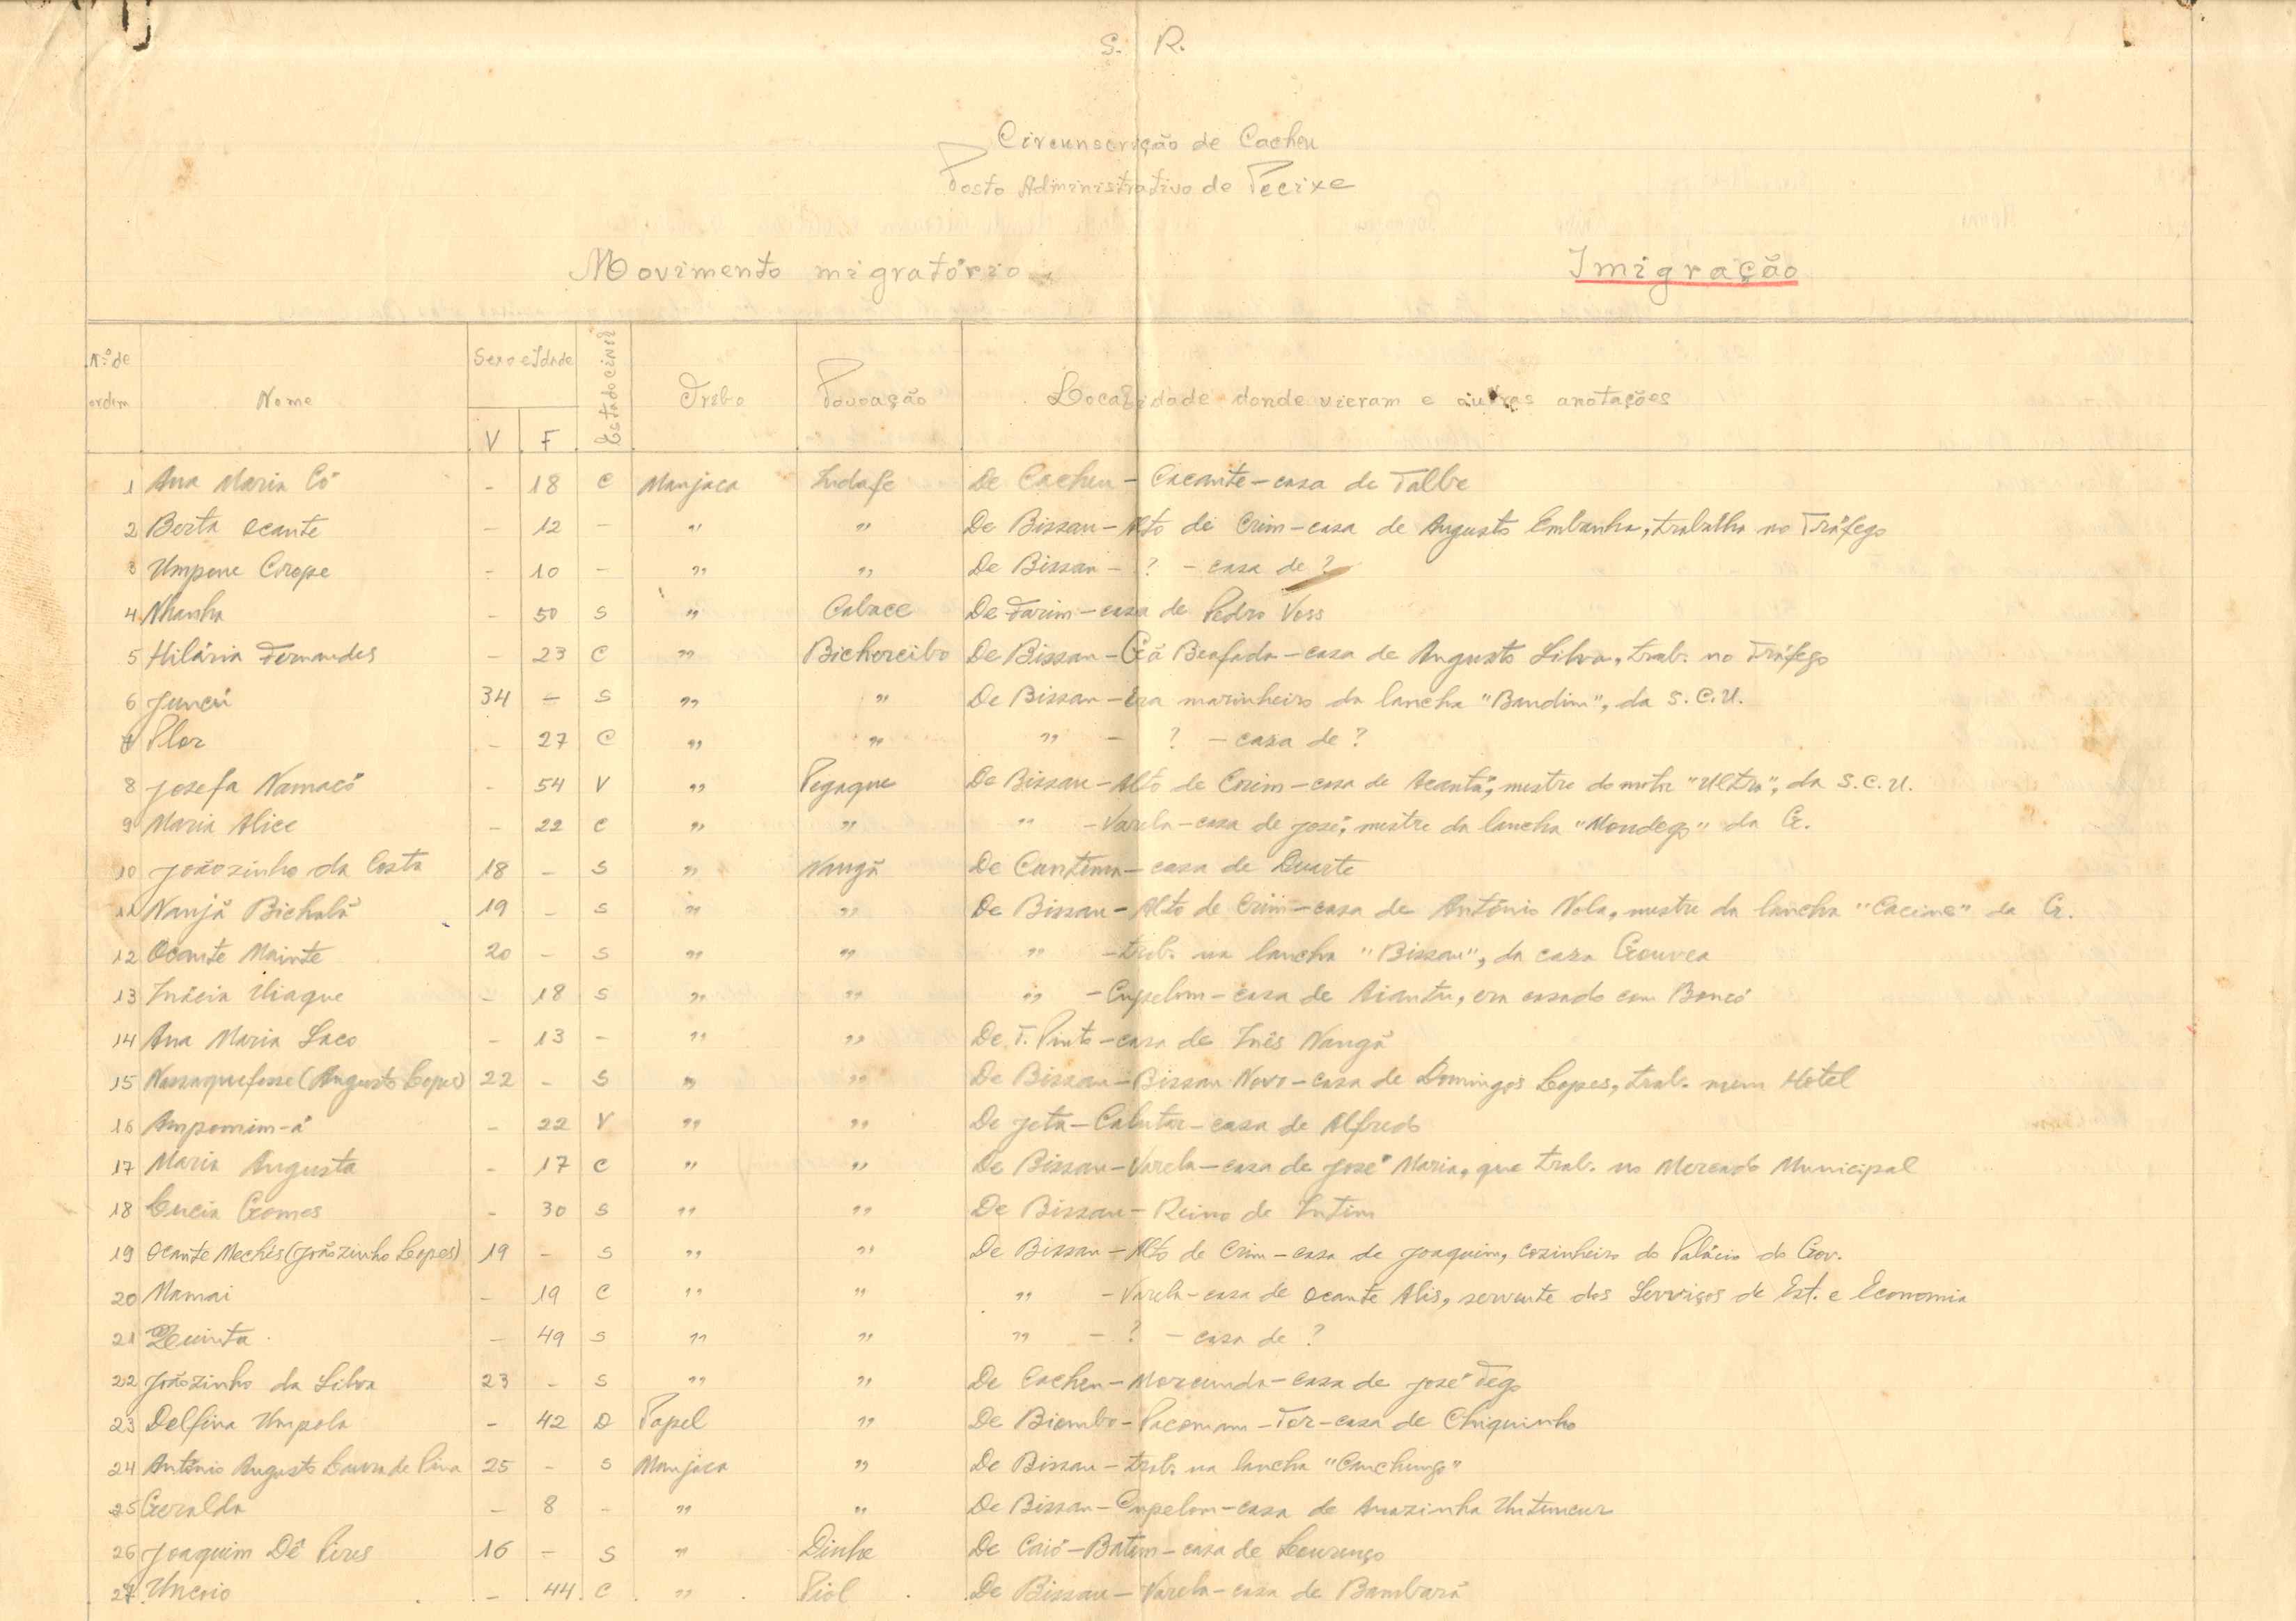 S. R.
Circunscrição de Cacheu
Posto Administrativo de Pecixe
Movimento migratório Imigração
N.º de ordem Nome Sexo e Idade V F Estado civil Tribo Povoação Localidade donde vieram e outras anotações
1 Ana Maria Có - 18 C Manjaca Indafe De Cacheu - Cacante - casa de Talbe
2 Berta Ocante - 12 - " " De Bissau - Alto de Crim - casa de Augusto Embanha, trabalha no Tráfego
3 Umpene Corope - 10 - " " De Bissau - ? - casa de ?
4 Nhanha - 50 S " Cabace De Farim - casa de Pedro Voss
5 Hilária Fernandes - 23 C " Bichorcibo De Bissau - Gã Beafada - casa de Augusto Silva, trab. no Tráfego
6 Juncú 34 - S " " De Bissau - Era marinheiro da lancha "Bandim", da S.C.U.
7 Flor - 27 C " " " - ? - casa de ?
8 Josefa Namacó - 54 V " Pegaque De Bissau - Alto de Crim - casa de Acantá, mestre do motor "Ultra", da S.C.U.
9 Maria Alice - 22 C " " " - Varela - casa de José, mestre da lancha "Mondego" da G.
10 Joãozinho da Costa 18 - S " Nangã De Cuntima - casa de Duarte
11 Nanjã Bichalã 19 - S " " De Bissau - Alto de Crim - casa de António Nola, mestre da lancha "Cacine" da G.
12 Ocante Mainte 20 - S " " " - trab. na lancha "Bissau", da casa Gouvea
13 Inácia Uiaque - 18 S " " " - Cupelom - casa de Aiantu, era casado com Boncó
14 Ana Maria Saco - 13 - " " De T. Pinto - casa de Inês Nangã
15 Nassaquefosse (Augusto Lopes) 22 - S " " De Bissau - Bissau Novo - casa de Domingos Lopes, trab. num Hotel
16 Ampomim-á - 22 V " " De Jeta - Cabutar - casa de Alfredo
17 Maria Augusta - 17 C " " De Bissau - Varela - casa de José Maria, que trab. no Mercado Municipal
18 Lucia Gomes - 30 S " " De Bissau - Reino de Intim
19 Ocante Mechés (Joãozinho Lopes) 19 - S " " De Bissau - Alto de Crim - casa de Joaquim, cozinheiro do Palácio do Gov.
20 Mamai - 19 C " " " - Varela - casa de Ocante Alis, servente dos Serviços de Est. e Economia
21 Quinta - 49 S " " " - ? - casa de ?
22 Joãozinho da Silva 23 - S " " De Cacheu - Morcunda - casa de José Tego
23 Delfina Umpola - 42 D Papel " De Biombo - Tor - casa de Chiquinho
24 António Augusto de Pina 25 - S Manjaca " De Bissau - trab. na lancha "Canchungo"
25 Geralda - 8 - " " De Bissau - Cupelom - casa de Anazinha
26 Joaquim Dê Pires 16 - S " Dinhe De Caió - Batim - casa de Lourenço
27 Uncoio - 44 C " Piol De Bissau - Varela - casa de Bambará